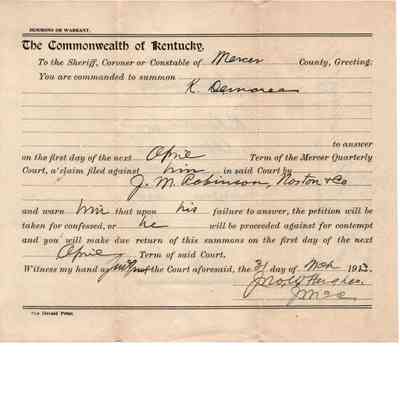 SUMMONS OR WARRANT.
The Commonwealth of Kentucky,
To the Sheriff, Coroner or Constable of Mercer County, Greeting:
You are commanded to summon
K. Demaree
to answer
on the first day of the next April Term of the Mercer Quarterly
Court, a claim filed against him in said Court by
J. M. Robinson, Norton & Co
and warn him that upon his failure to answer, the petition will be
taken for confessed, or he will be proceeded against for contempt
and you will make due return of this summons on the first day of the next
April Term of said Court.
Witness my hand as the Court aforesaid, the 31 day of Mch 191
Jno. W. Hughes